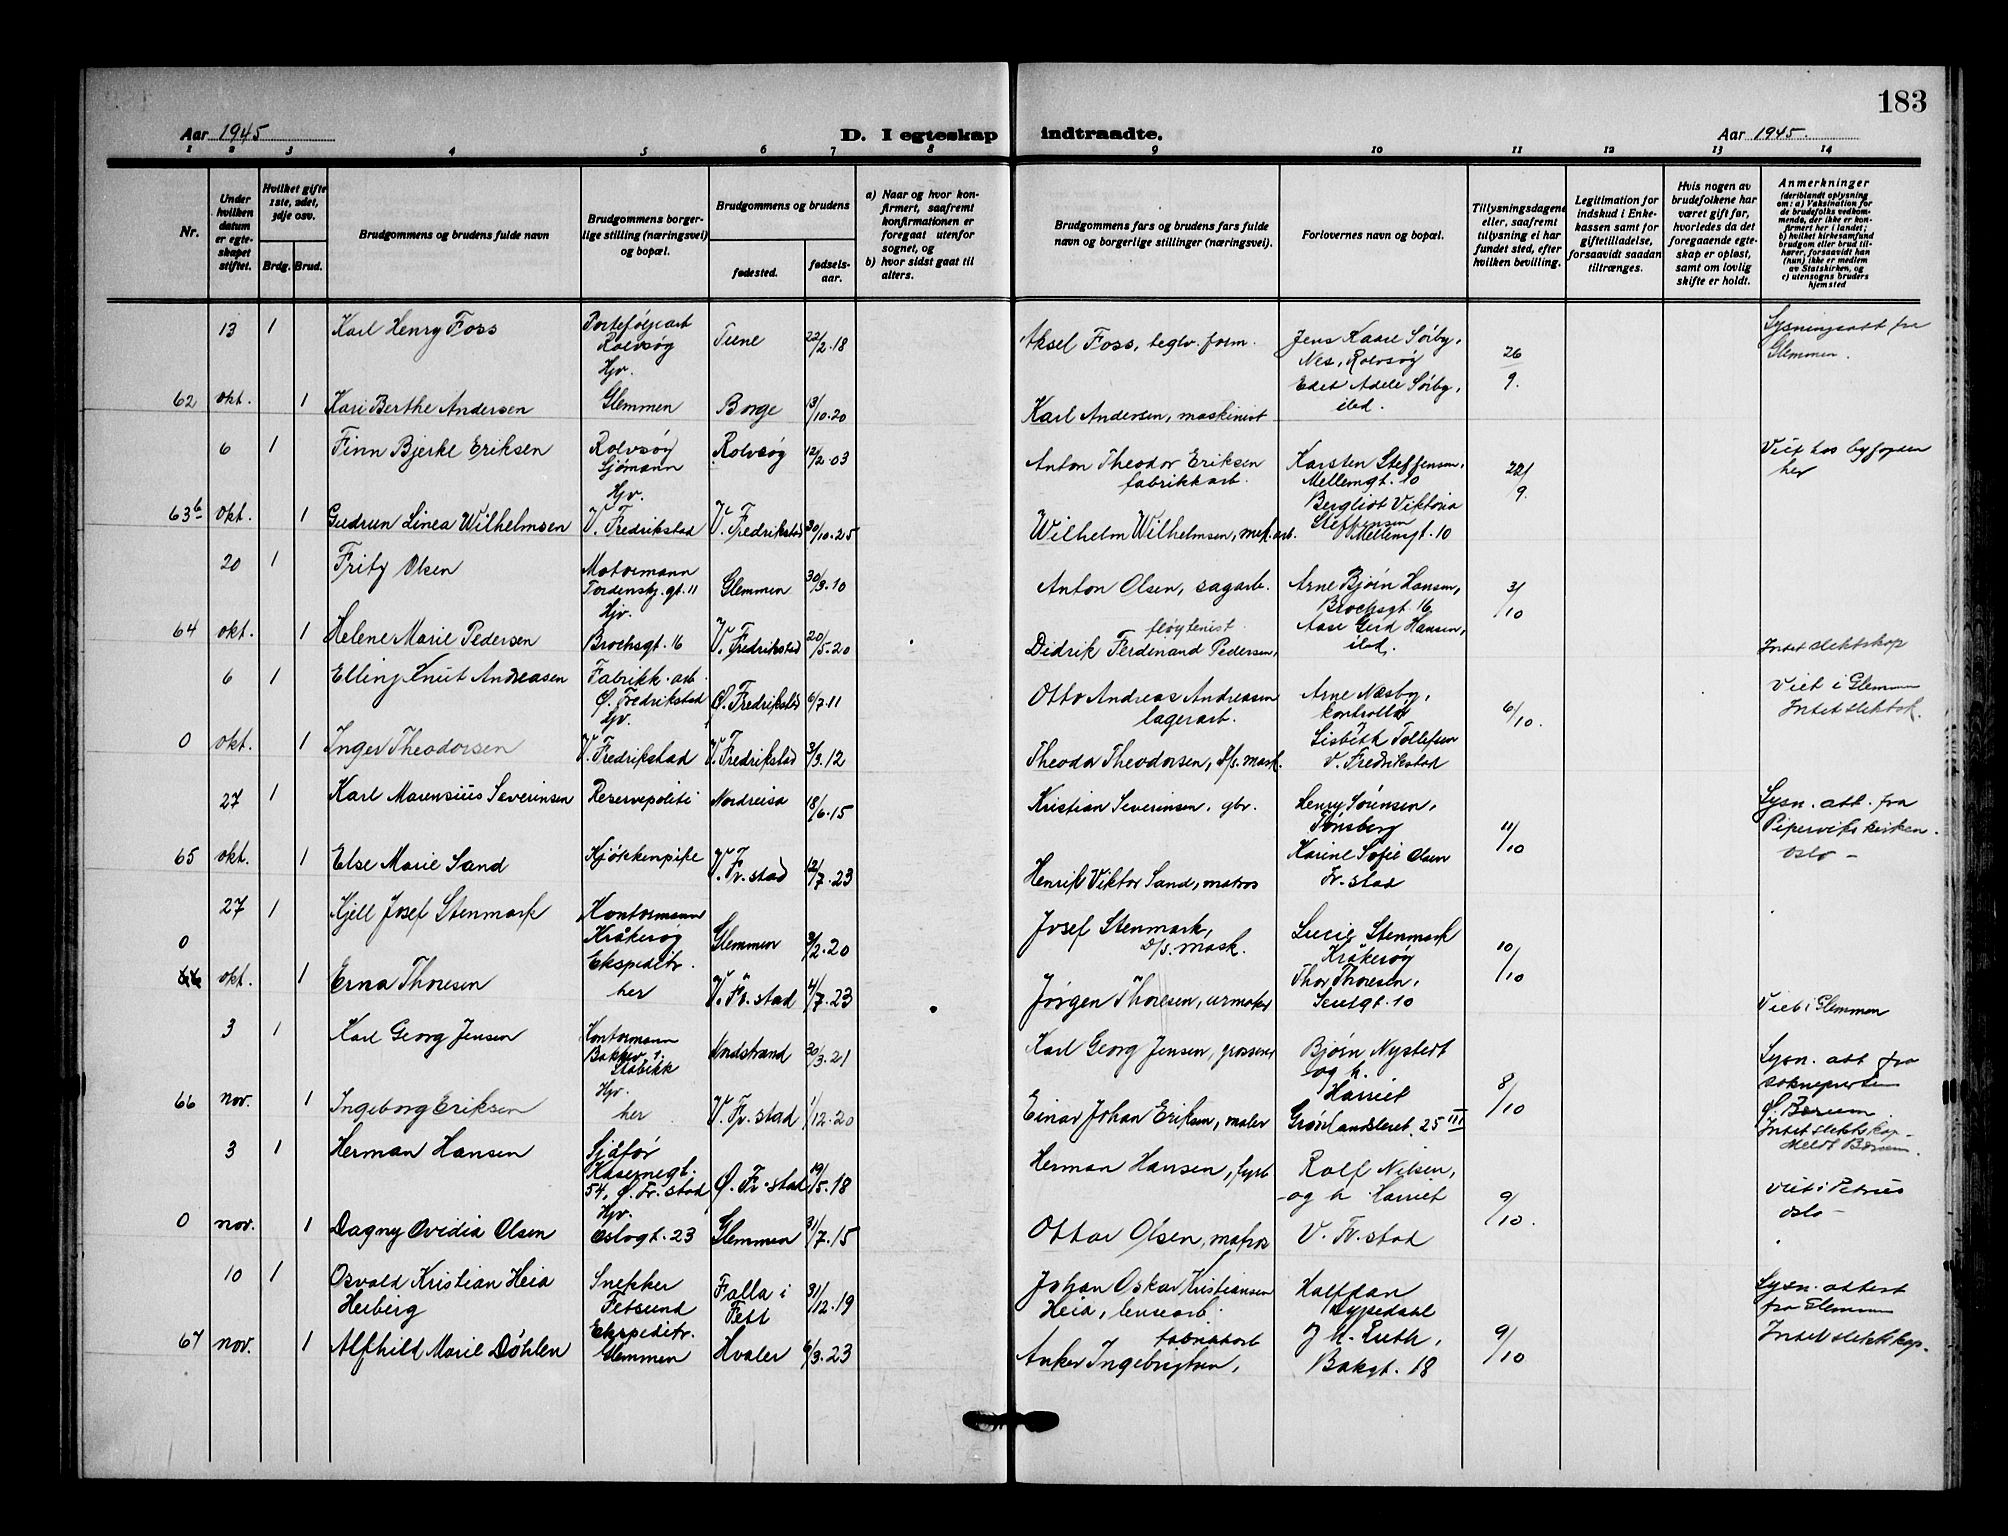 183
Aar 1945
D. I egteskap indtraadte.
Aar 1945.
1 2 3 4 5 6 7 8 9 10 11 12 13 14
Nr.
Under hvilken datum er egteskapet stiftet.
Hvilket gifte 1ste, 2det, 3dje osv.
Brdg. Brud.
Brudgommens og brudens fulde navn
Brudgommens borgerlige stilling (næringsvei) og bopæl.
Brudgommens og brudens
fødested.
fødselsaar.
a) Naar og hvor konfirmert, saafremt konfirmationen er foregaat utenfor sognet, og
b) hvor sidst gaat til alters.
Brudgommens fars og brudens fars fulde navn og borgerlige stillinger (næringsvei).
Forlovernes navn og bopæl.
Tillysningsdagene eller, saafremt tillysning ei har fundet sted, efter hvilken bevilling.
Legitimation for indskud i Enkekassen samt for giftetilladelse, forsaavidt saadan tiltrænges.
Hvis nogen av brudefolkene har været gift før, hvorledes da det foregaaende egteskap er opløst, samt om lovlig skifte er holdt.
Anmerkninger
(deriblandt oplysning om: a) Vaksination for de brudefolks vedkommende, der ikke er konfirmert her i landet;
b) hvilket kirkesamfund brudgom eller brud tilhører, forsaavidt han (hun) ikke er medlem av Statskirken, og
c) utensogns bruders hjemsted
13 1 Karl Henry Foss Porteføljearb Rolvsøy Tune 22/2.18 Aksel Foss, teglv. form. Jens Kaare Sørby, Nes, Rolvsøy 26/9. Lysningsatt fra Glemmen.
Hjv. Edet Adele Sørby, ibd.
62 okt. 1 Kari Berthe Andersen Glemmen Borge 13/10.20 Karl Andersen, maskinist
6 1 Finn Bjerke Eriksen Rolvsøy Sjømann Rolvsøy 12/2.03 Anton Theodor Eriksen fabrikkarb. Karsten Steffensen, Mellemgt. 10 Viet hos byfogden her
Hjv. Bergliot Viktoria Steffensen Mellemgt. 10
63b okt. 1 Gudrun Linea Wilhelmsen V. Fredrikstad V. Fredrikstad 30/10.25 Wilhelm Wilhelmsen, mek. arb.
20 1 Fritz Olsen Motormann Tordenskj. gt. 11 Glemmen 30/3.10 Anton Olsen, sagarb. Arne Bjørn Hansen, Brochsgt 16 3/10
Hjv. Aase Gerd Hansen, ibd.
64 okt. 1 Helene Marie Pedersen Brochsgt. 16 V. Fredrikstad 20/5.20 fløytenist Didrik Ferdinand Pedersen, Intet slektskap
6 1 Elling Knut Andreasen Fabrikk. arb. Ø. Fredrikstad Ø. Fredrikstd 6/7.11 Otto Andreas Andreasen lagerarb. Arne Næsby, kontrollør 6/10. Viet i Glemmen Intet slektsk.
0 okt. 1 Inger Theodorsen V. Fredrikstad V. Fredrikstad 3/3.12 Theodor Theodorsen, D/s. mask. Lisbeth Tollefsen V. Fredrikstad
27 1 Karl Marensius Severinsen Reservepoliti Nordreisa 18/6.15 Kristian Severinsen, gbr. Henry Sørensen, Tønsberg 11/10 Lysn. att. fra Pipervikskirken. Oslo -
65 okt. 1 Else Marie Sand Kjøkkenpike V. Fr.stad 12/7.23 Henrik Viktor Sand, matros Karine Sofie Olsen Fr. stad
27 1 Kjell Josef Stenmark Kontormann Kråkerøy Glemmen 3/2.20 Josef Stenmark, D/s. mask. Lucie Stenmark Kråkerøy 10/10
0
66 okt. 1 Erna Thoresen Ekspeditr. her V. Fr. stad 4/7.23 Jørgen Thoresen, urmaker Thor Thoresen, Viet i Glemmen
3 1 Karl Georg Jensen Kontormann Stabekk Nordstrand 30/3.21 Karl Georg Jensen, grosserer Bjørn Nystedt og h. 8/10 Lysn. att fra soknepresten
66 nov. 1 Ingeborg Eriksen Hjv. her V. Fr. stad 1/12.20 Einar Johan Eriksen, maler Harriet Grønlandsleret. 25 III Ø. Bærum. Intet slektskap -
3 1 Herman Hansen Sjåfør Kasernegt. 54, Ø. Fr. stad Ø. Fr. stad 19/5.18 Herman Hansen, fyrb Rolf Nilsen, og h Harriet 9/10. Viet i Petrus Oslo -
0 nov. 1 Dagny Ovidia Olsen Hjv. Oslogt. 23 Glemmen 31/7.15 Ottar Olsen, matros V. Fr. stad
10 1 Osvald Kristian Heia Heiberg Snekker Fetsund Falla i Fett 31/12.19 Johan Oskar Kristiansen Heia, lensearb. Halfdan 9/10 Lysn. attest fra Glemmen
67 nov. 1 Alfhild Marie Døhlen Ekspeditr. Glemmen Hvaler 6/3.23 fabrikkarb Anker Ingebrigtsen, Bakgt. 18 Intet slektskap.